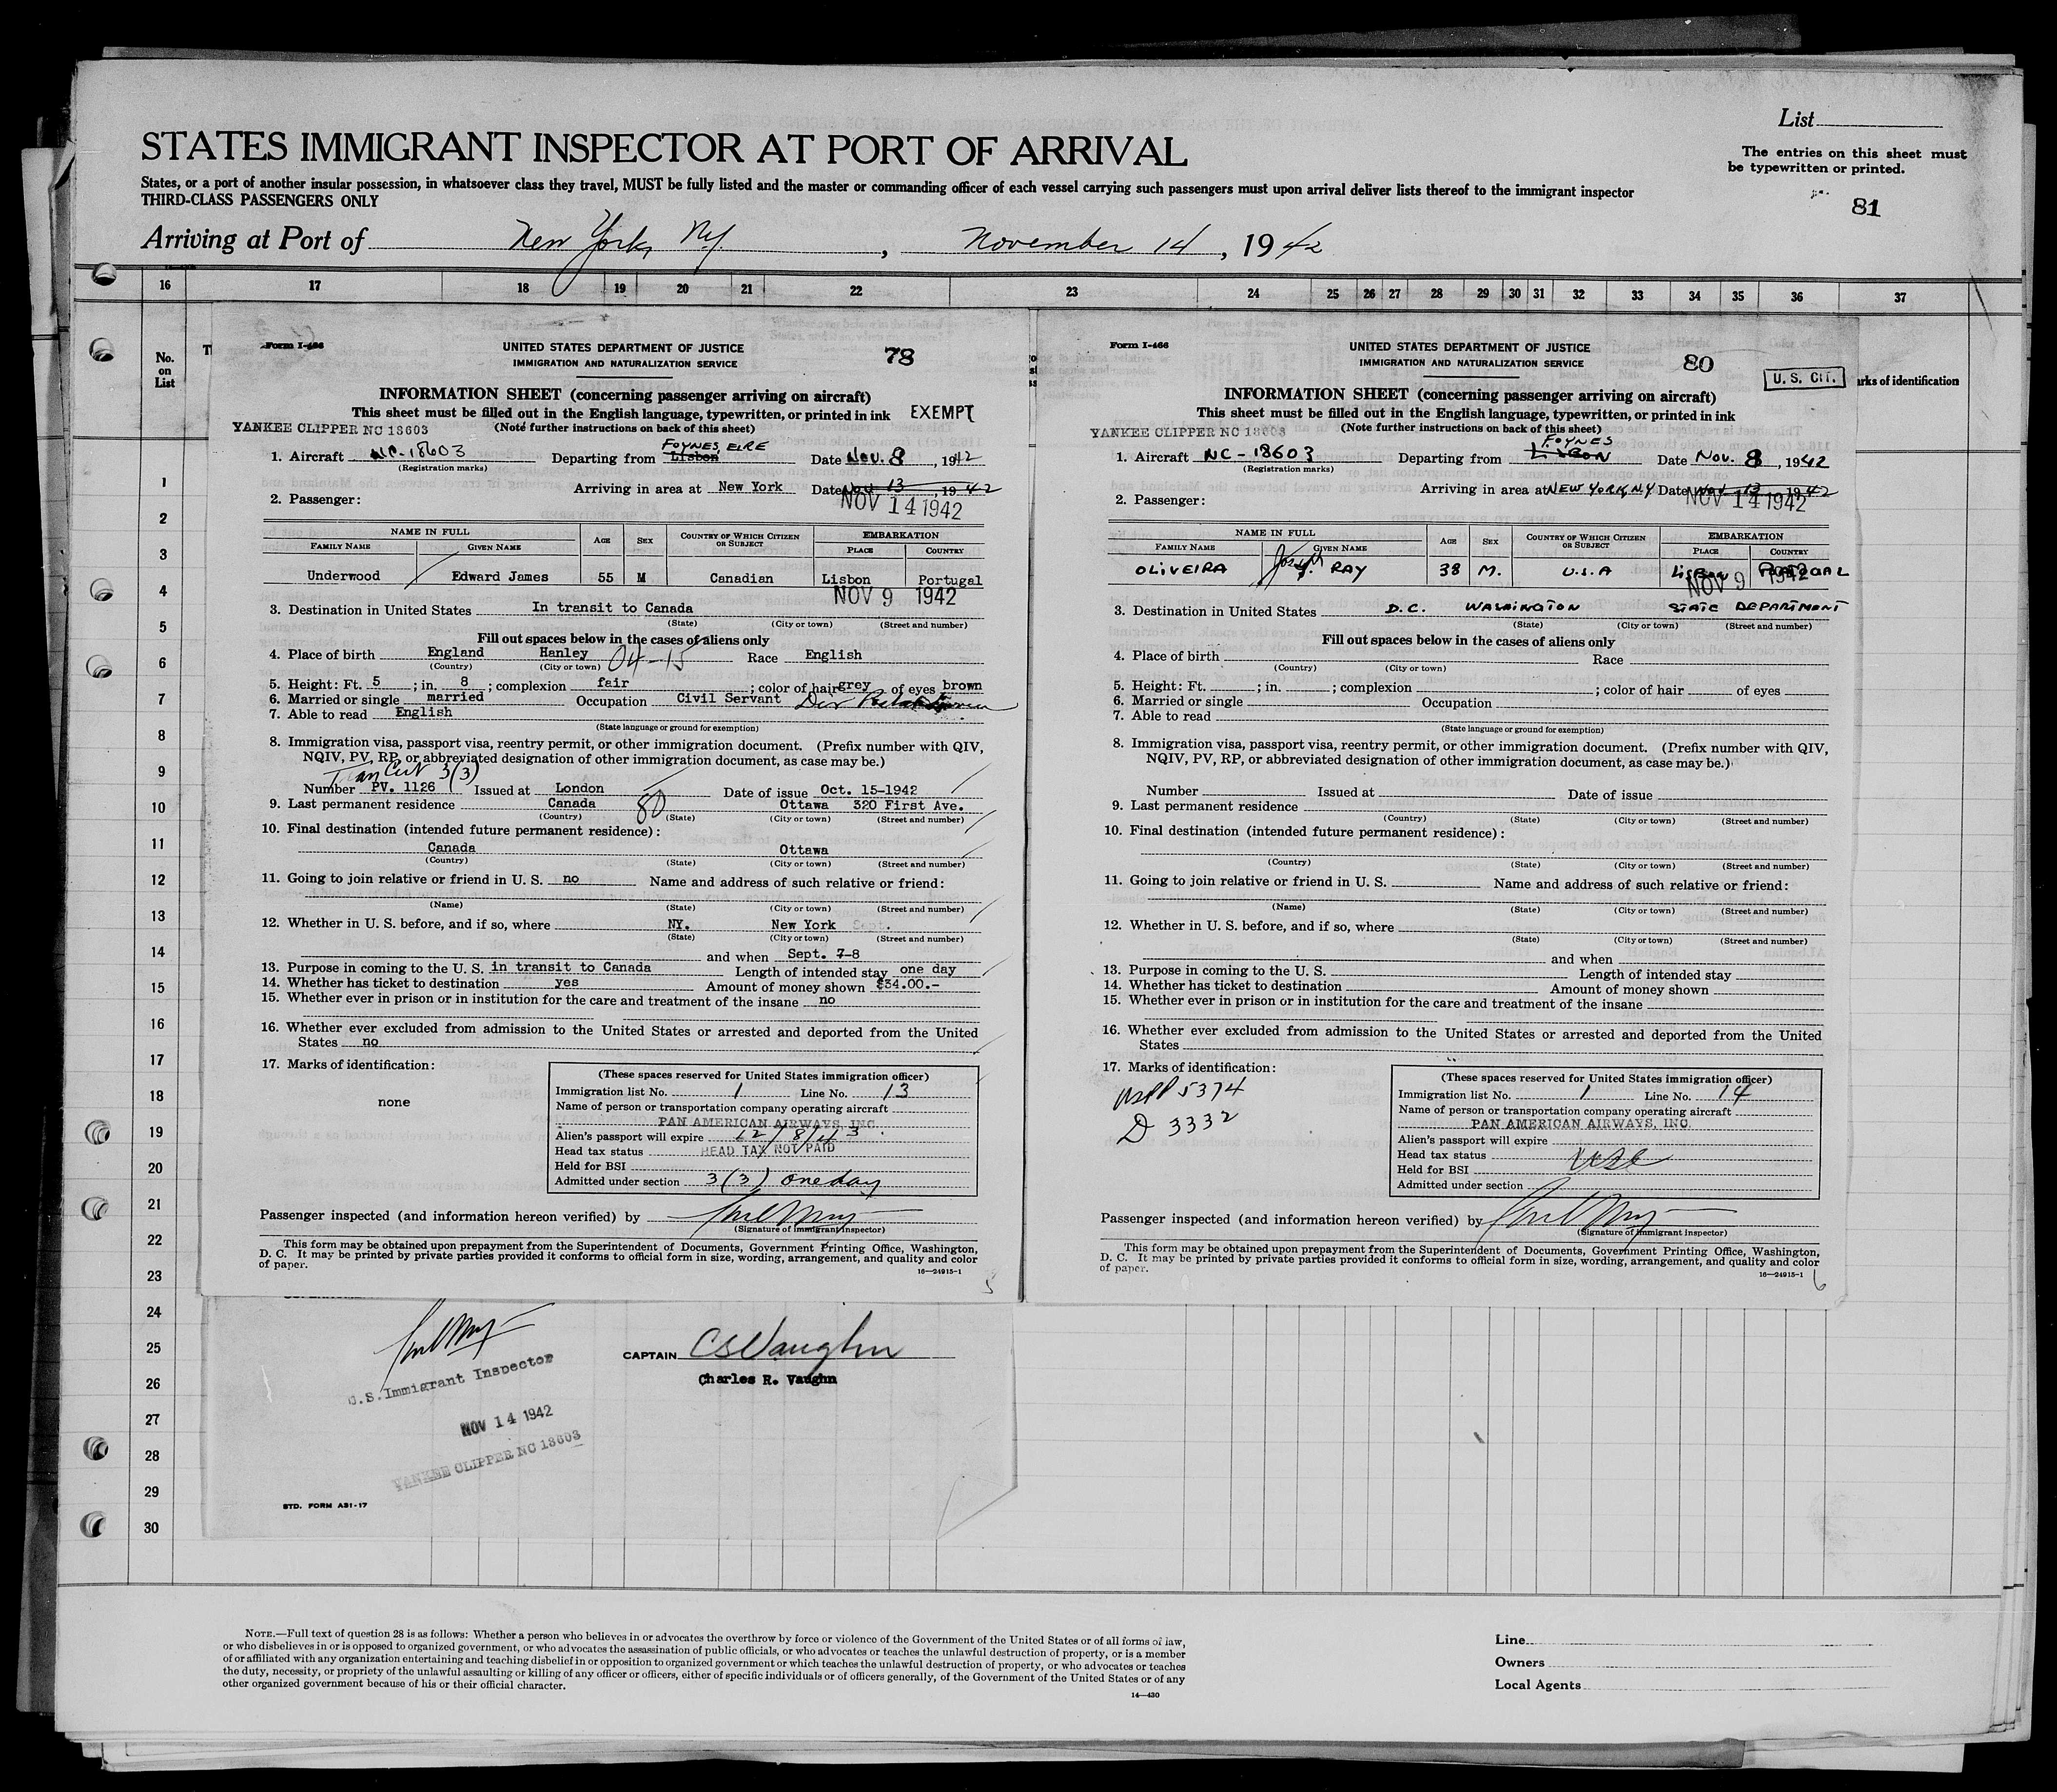 List
STATES IMMIGRANT INSPECTOR AT PORT OF ARRIVAL
The entries on this sheet must
be typewritten or printed.
States, or a port of another insular possession, in whatsoever class they travel, MUST be fully listed and the master or commanding officer of each vessel carrying such passengers must upon arrival deliver lists thereof to the immigrant inspector
THIRD-CLASS PASSENGERS ONLY
81
Arriving at Port of New York, NY, November 14, 1942
16 17 18 19 20 21 22 23 24 25 26 27 28 29 30 31 32 33 34 35 36 37
No.
on
List
rks of identification
1
2
3
4
5
6
7
8
9
10
11
12
13
14
15
16
17
18
19
20
21
22
23
24
25
26
27
28
29
30
Form I-466
UNITED STATES DEPARTMENT OF JUSTICE
78
IMMIGRATION AND NATURALIZATION SERVICE
INFORMATION SHEET (concerning passenger arriving on aircraft)
This sheet must be filled out in the English language, typewritten, or printed in ink
EXEMPT
YANKEE CLIPPER NC 18603
(Note further instructions on back of this sheet)
FOYNES, EIRE
1. Aircraft NC-18603 Departing from Lisbon Date Nov. 8, 1942
(Registration marks)
Arriving in area at New York Date Nov 13, 1942
2. Passenger:
NOV 14 1942
NAME IN FULL
AGE SEX COUNTRY OF WHICH CITIZEN OR SUBJECT
EMBARKATION
FAMILY NAME GIVEN NAME
PLACE COUNTRY
Underwood Edward James 55 M Canadian Lisbon Portugal
NOV 9 1942
3. Destination in United States In transit to Canada
(State) (City or town) (Street and number)
Fill out spaces below in the cases of aliens only
4. Place of birth England Hanley 04-15 Race English
(Country) (City or town)
5. Height: Ft. 5; in. 8; complexion fair; color of hair grey of eyes brown
6. Married or single married Occupation Civil Servant
7. Able to read English
(State language or ground for exemption)
8. Immigration visa, passport visa, reentry permit, or other immigration document. (Prefix number with QIV,
NQIV, PV, RP, or abbreviated designation of other immigration document, as case may be.)
3(3)
Number PV. 1126 Issued at London Date of issue Oct. 15-1942
9. Last permanent residence Canada 80 Ottawa 320 First Ave.
(Country) (State) (City or town) (Street and number)
10. Final destination (intended future permanent residence):
Canada Ottawa
(Country) (State) (City or town) (Street and number)
11. Going to join relative or friend in U. S. no Name and address of such relative or friend:
(Name) (State) (City or town) (Street and number)
12. Whether in U. S. before, and if so, where NY. New York Sept.
(State) (City or town) (Street and number)
and when Sept. 7-8
13. Purpose in coming to the U. S. in transit to Canada Length of intended stay one day
14. Whether has ticket to destination yes Amount of money shown $34.00.-
15. Whether ever in prison or in institution for the care and treatment of the insane no
16. Whether ever excluded from admission to the United States or arrested and deported from the United
States no
17. Marks of identification:
none
(These spaces reserved for United States immigration officer)
Immigration list No. 1 Line No. 13
Name of person or transportation company operating aircraft
PAN AMERICAN AIRWAYS, INC.
Alien's passport will expire 12/8/43
Head tax status HEAD TAX NOT PAID
Held for BSI
Admitted under section 3(3) one day
Passenger inspected (and information hereon verified) by
(Signature of immigrant inspector)
This form may be obtained upon prepayment from the Superintendent of Documents, Government Printing Office, Washington,
D. C. It may be printed by private parties provided it conforms to official form in size, wording, arrangement, and quality and color
of paper.
16—24915-1
5
Form I-466
UNITED STATES DEPARTMENT OF JUSTICE
80
IMMIGRATION AND NATURALIZATION SERVICE
U. S. CIT.
INFORMATION SHEET (concerning passenger arriving on aircraft)
This sheet must be filled out in the English language, typewritten, or printed in ink
YANKEE CLIPPER NC 18603
(Note further instructions on back of this sheet)
FOYNES
1. Aircraft NC-18603 Departing from LISBON Date Nov. 8, 1942
(Registration marks)
Arriving in area at NEW YORK, NY Date Nov. 13, 1942
2. Passenger:
NOV 14 1942
NAME IN FULL
AGE SEX COUNTRY OF WHICH CITIZEN OR SUBJECT
EMBARKATION
FAMILY NAME GIVEN NAME
PLACE COUNTRY
OLIVEIRA Joseph J. RAY 38 M. U.S.A LISBON PORTUGAL
NOV 9 1942
3. Destination in United States D.C. WASHINGTON STATE DEPARTMENT
(State) (City or town) (Street and number)
Fill out spaces below in the cases of aliens only
4. Place of birth Race
(Country) (City or town)
5. Height: Ft. ; in. ; complexion ; color of hair of eyes
6. Married or single Occupation
7. Able to read
(State language or ground for exemption)
8. Immigration visa, passport visa, reentry permit, or other immigration document. (Prefix number with QIV,
NQIV, PV, RP, or abbreviated designation of other immigration document, as case may be.)
Number Issued at Date of issue
9. Last permanent residence
(Country) (State) (City or town) (Street and number)
10. Final destination (intended future permanent residence):
(Country) (State) (City or town) (Street and number)
11. Going to join relative or friend in U. S. Name and address of such relative or friend:
(Name) (State) (City or town) (Street and number)
12. Whether in U. S. before, and if so, where
(State) (City or town) (Street and number)
and when
13. Purpose in coming to the U. S. Length of intended stay
14. Whether has ticket to destination Amount of money shown
15. Whether ever in prison or in institution for the care and treatment of the insane
16. Whether ever excluded from admission to the United States or arrested and deported from the United
States
17. Marks of identification:
USPP 5374
D 3332
(These spaces reserved for United States immigration officer)
Immigration list No. 1 Line No. 14
Name of person or transportation company operating aircraft
PAN AMERICAN AIRWAYS, INC.
Alien's passport will expire
Head tax status USC
Held for BSI
Admitted under section
Passenger inspected (and information hereon verified) by
(Signature of immigrant inspector)
This form may be obtained upon prepayment from the Superintendent of Documents, Government Printing Office, Washington,
D. C. It may be printed by private parties provided it conforms to official form in size, wording, arrangement, and quality and color
of paper.
16—24915-1
6
U.S. Immigrant Inspector
CAPTAIN CSVaughn
Charles R. Vaughn
NOV 14 1942
YANKEE CLIPPER NC 18603
STD. FORM ABI-17
NOTE.—Full text of question 28 is as follows: Whether a person who believes in or advocates the overthrow by force or violence of the Government of the United States or of all forms of law,
or who disbelieves in or is opposed to organized government, or who advocates the assassination of public officials, or who advocates or teaches the unlawful destruction of property, or is a member
of or affiliated with any organization entertaining and teaching disbelief in or opposition to organized government or which teaches the unlawful destruction of property, or who advocates or teaches
the duty, necessity, or propriety of the unlawful assaulting or killing of any officer or officers, either of specific individuals or of officers generally, of the Government of the United States or of any
other organized government because of his or their official character.
14—430
Line
Owners
Local Agents